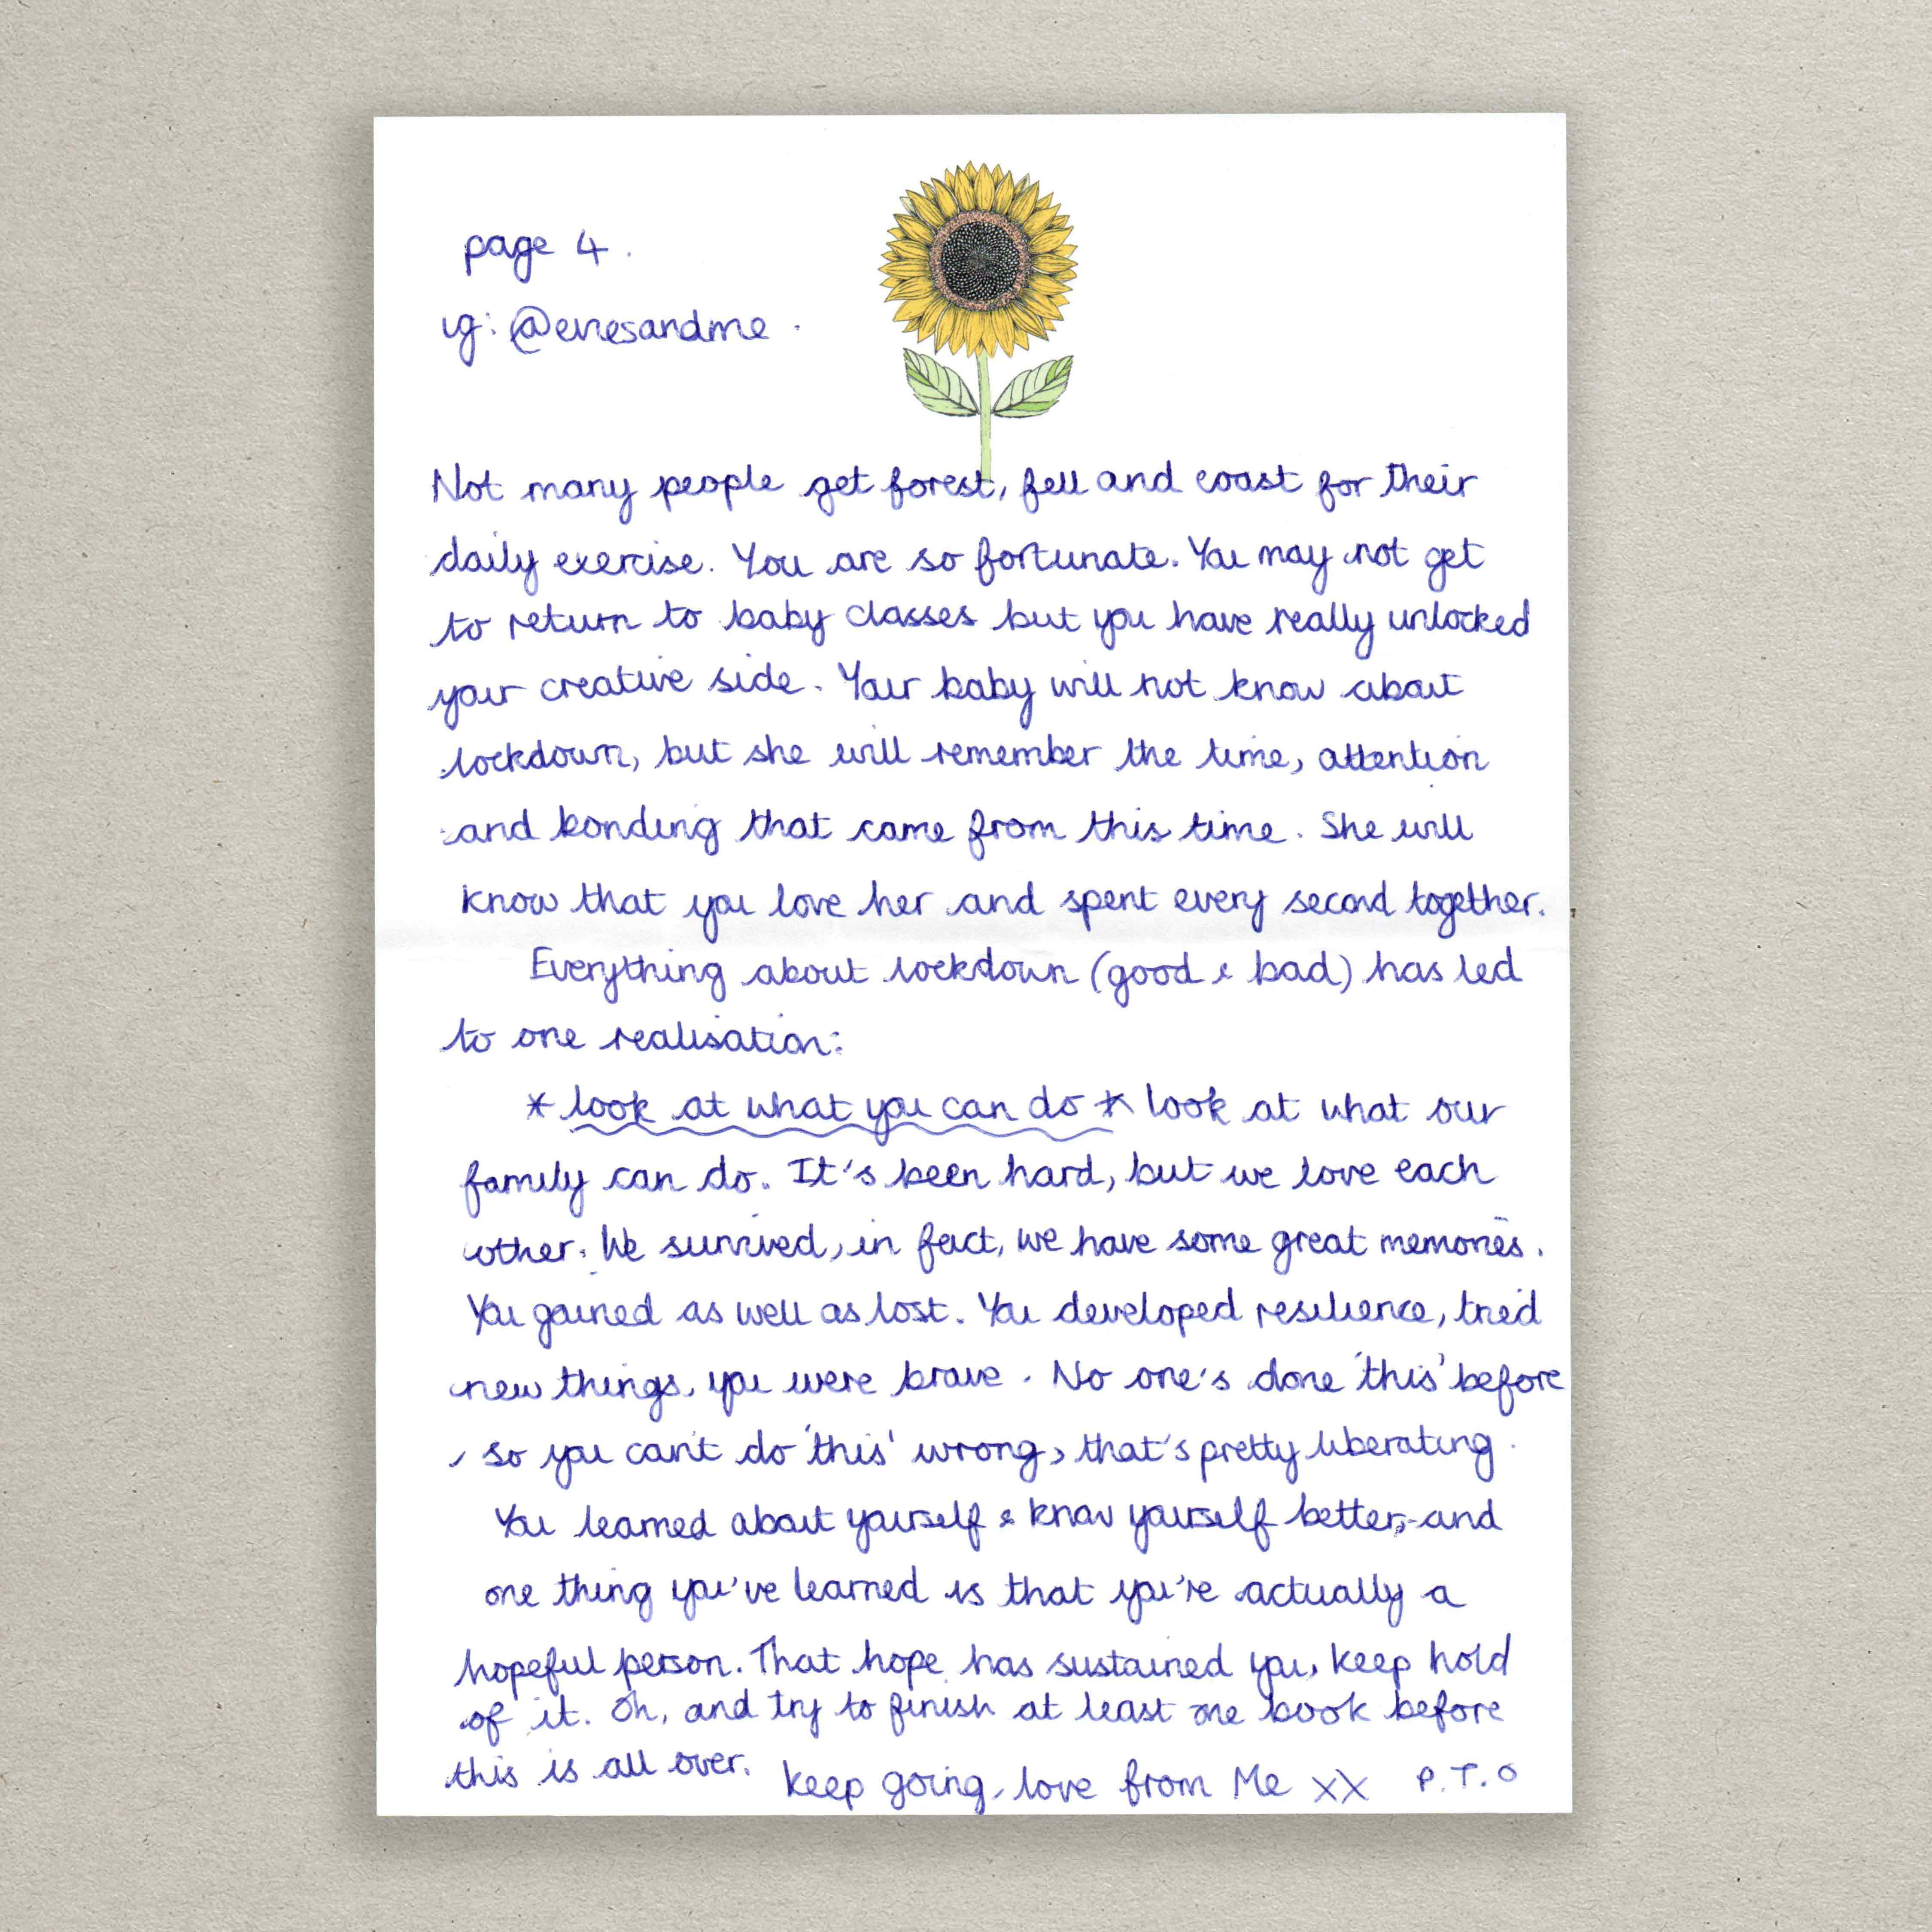 page 4.
ig: @eviesandme.
Not many people get forest, fell and coast for their
daily exercise. You are so fortunate. You may not get
to return to baby classes but you have really unlocked
your creative side. Your baby will not know about
lockdown, but she will remember the time, attention
and bonding that came from this time. She will
know that you love her and spent every second together.
Everything about lockdown (good & bad) has led
to one realisation:
* look at what you can do * look at what our
family can do. It's been hard, but we love each
other. We survived, in fact, we have some great memories.
You gained as well as lost. You developed resilience, tried
new things, you were brave. No one's done 'this' before
, so you can't do 'this' wrong, that's pretty liberating.
You learned about yourself & know yourself better, and
one thing you've learned is that you're actually a
hopeful person. That hope has sustained you, keep hold
of it. Oh, and try to finish at least one book before
this is all over. keep going, love from Me xx P.T.O